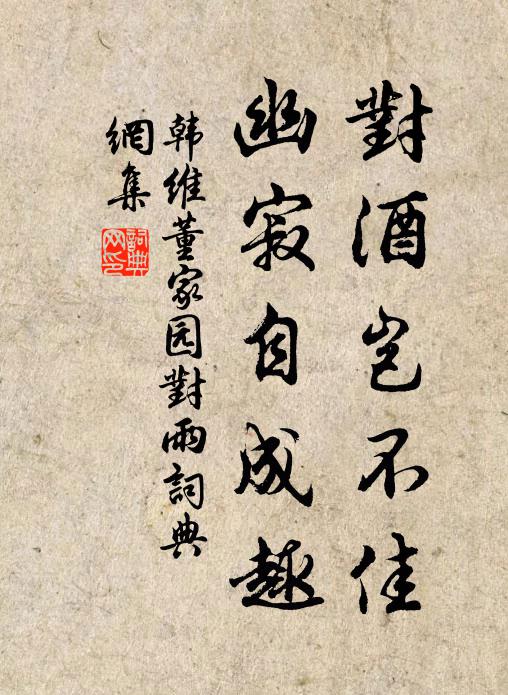 對酒岂不佳
幽寂自成趣
韩維董家园對雨詞典
網集
詞典网印